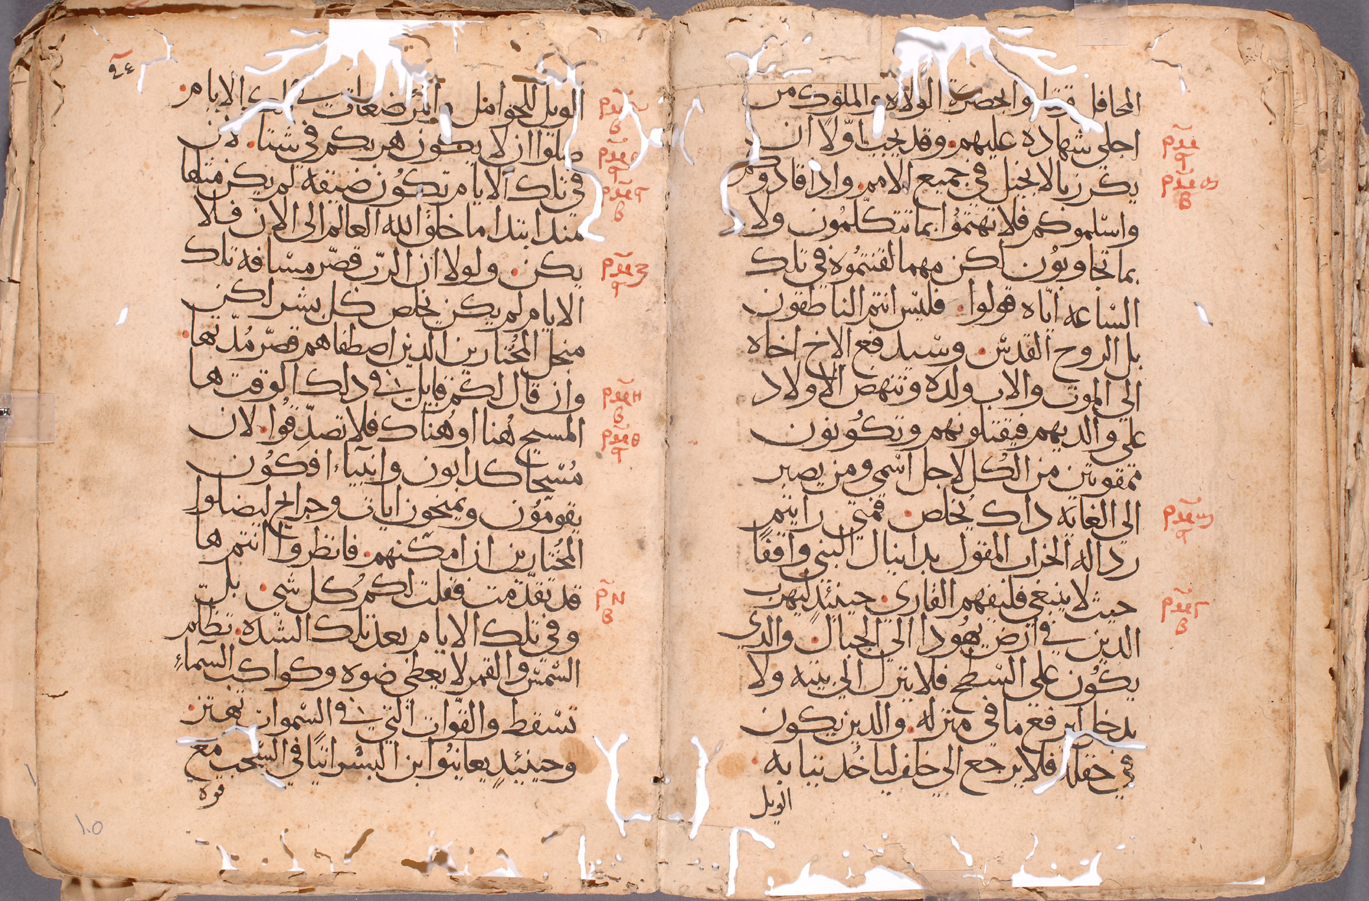 المحافل وتقاموا بحضرة الولاة والملوك من
اجلي شهاده عليهم. وقد يجب اولا ان
يكرز بالانجيل في جميع الامم. واذا قادوكم
واسلموكم فلا تهتموا بما تتكلمون ولا
بما تجاوبون لكن مهما لقنتموه في تلك
الساعة اياه قولوا. فليس انتم الناطقون
بل الروح القدس. وسيدفع الاخ اخاه
الى الموت والاب ولده وتنهض الاولاد
على والديهم فيقتلونهم وتكونون
ممقوتين من الكل لاجل اسمي ومن يصبر
الى الغاية ذاك يخلص. فمتى رايتم
رذالة الخراب المقول بدانيال النبي واقفا
حيث لا ينبغي فليفهم القاري. حينيذ ليهرب
الذين في ارض يهودا الى الجبال. والذي
يكون على السطح فلا ينزل الى بيته ولا
يدخل ليرفع ما في منزله. والذين يكون
في حقله فلا يرجع الى خلف لياخذ ثيابه.
الويل
٩٤
الويل للحوامل والمرضعات في تلك الايام.
صلوا ان لا يكون هربكم في شتا. لان
في تلك الايام تكون ضيقة لم يكن مثلها
منذ ابتدا ما خلق الله العالم الى الان فلا
يكن. ولولا ان الرب قصر مسافة تلك
الايام لم يكن يخلص كل بشر لكن
من اجل المختارين الذين اصطفاهم قصر مدتها.
وان قال لكم قايل في ذلك الوقت ها
المسيح هنا او هناك فلا تصدقوا. لان
مسحا كذابون وانبياء افكون
يقومون ويمنحون ايات وجرايح ليضلوا
المختارين ان امكنهم. فانظروا انتم ها
قد تقدمت فقلت لكم كل شي. بل
وفي تلك الايام بعد تلك الشدة. تظلم
الشمس والقمر لا يعطي ضوه وكواكب السماء
تسقط والقوات التي في السموات تهتز.
وحينيذ يعاينوا ابن البشر اتيا في السحب مع
قوه
١٠٥